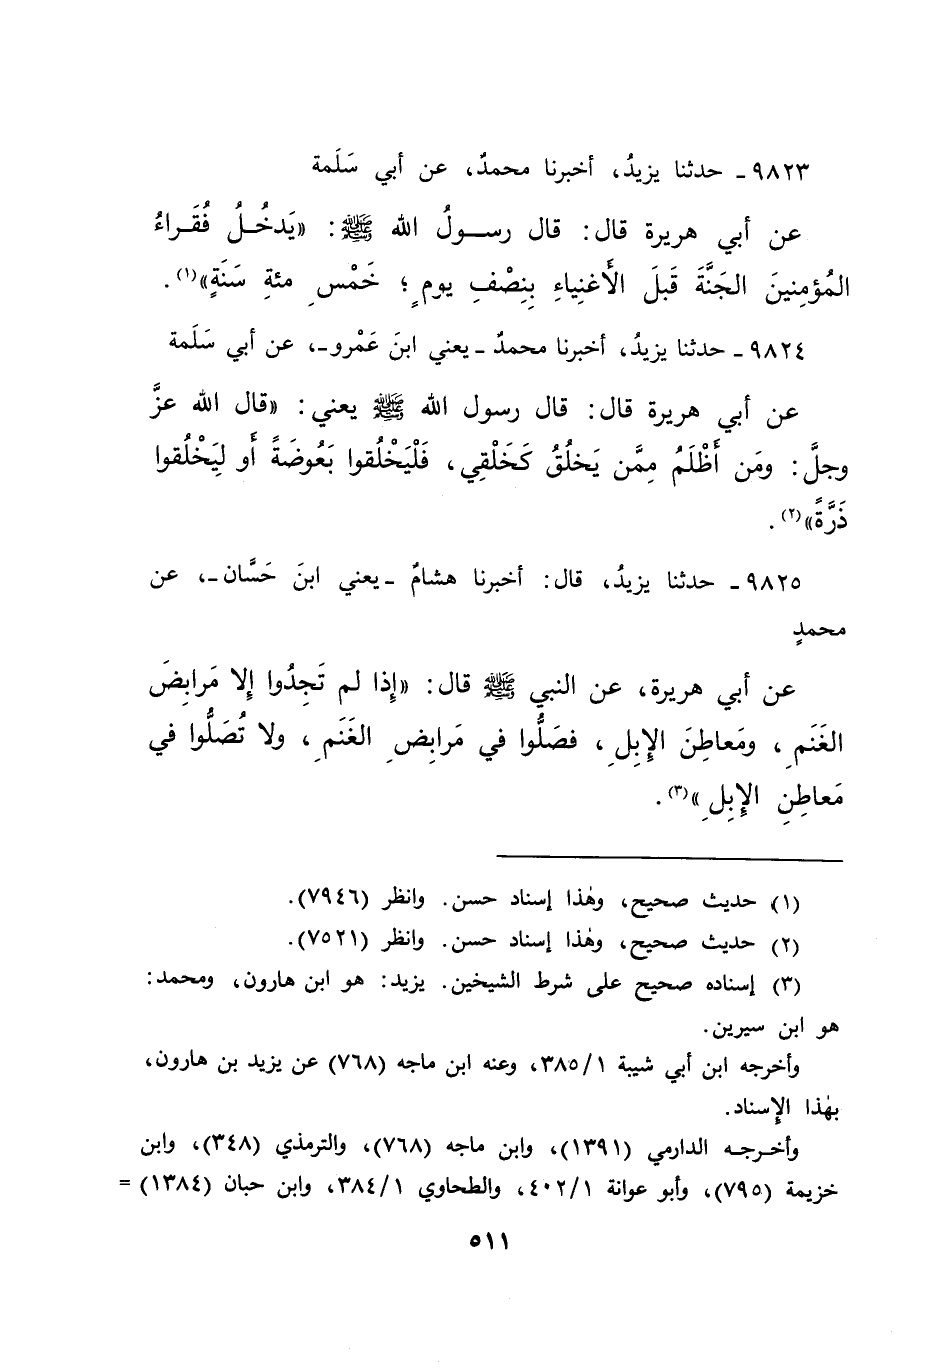 ٩٨٢٣ ـ حدثنا يزيدُ، أخبرنا محمدٌ، عن أبي سَلَمة
عن أبي هريرة قال: قال رسولُ الله ﷺ: «يَدخُلُ فُقَراءُ
المُؤمِنينَ الجَنَّةَ قَبلَ الأَغنِياءِ بِنِصْفِ يومٍ؛ خَمْسِ مئةِ سَنَةٍ»(١).
٩٨٢٤ ـ حدثنا يزيدُ، أخبرنا محمدٌ ـ يعني ابنَ عَمْرو ـ، عن أبي سَلَمة
عن أبي هريرة قال: قال رسول الله ﷺ يعني: «قال الله عزَّ
وجلَّ: ومَن أَظْلَمُ مِمَّن يَخلُقُ كَخَلْقِي، فَلْيَخْلُقوا بَعُوضَةً أَو لِيَخْلُقوا
ذَرَّةً»(٢).
٩٨٢٥ ـ حدثنا يزيدُ، قال: أخبرنا هشامٌ ـ يعني ابنَ حَسَّان ـ، عن
محمدٍ
عن أبي هريرة، عن النبي ﷺ قال: «إِذا لم تَجِدُوا إِلا مَرابِضَ
الغَنَمِ، ومَعاطِنَ الإِبِلِ، فصَلُّوا في مَرابِضِ الغَنَمِ، ولا تُصَلُّوا في
مَعاطِنِ الإِبِلِ»(٣).
(١) حديث صحيح، وهٰذا إسناد حسن. وانظر (٧٩٤٦).
(٢) حديث صحيح، وهٰذا إسناد حسن. وانظر (٧٥٢١).
(٣) إسناده صحيح على شرط الشيخين. يزيد: هو ابن هارون، ومحمد:
هو ابن سيرين.
وأخرجه ابن أبي شيبة ٣٨٥/١، وعنه ابن ماجه (٧٦٨) عن يزيد بن هارون،
بهٰذا الإِسناد.
وأخرجه الدارمي (١٣٩١)، وابن ماجه (٧٦٨)، والترمذي (٣٤٨)، وابن
خزيمة (٧٩٥)، وأبو عوانة ٤٠٢/١، والطحاوي ٣٨٤/١، وابن حبان (١٣٨٤) =
٥١١